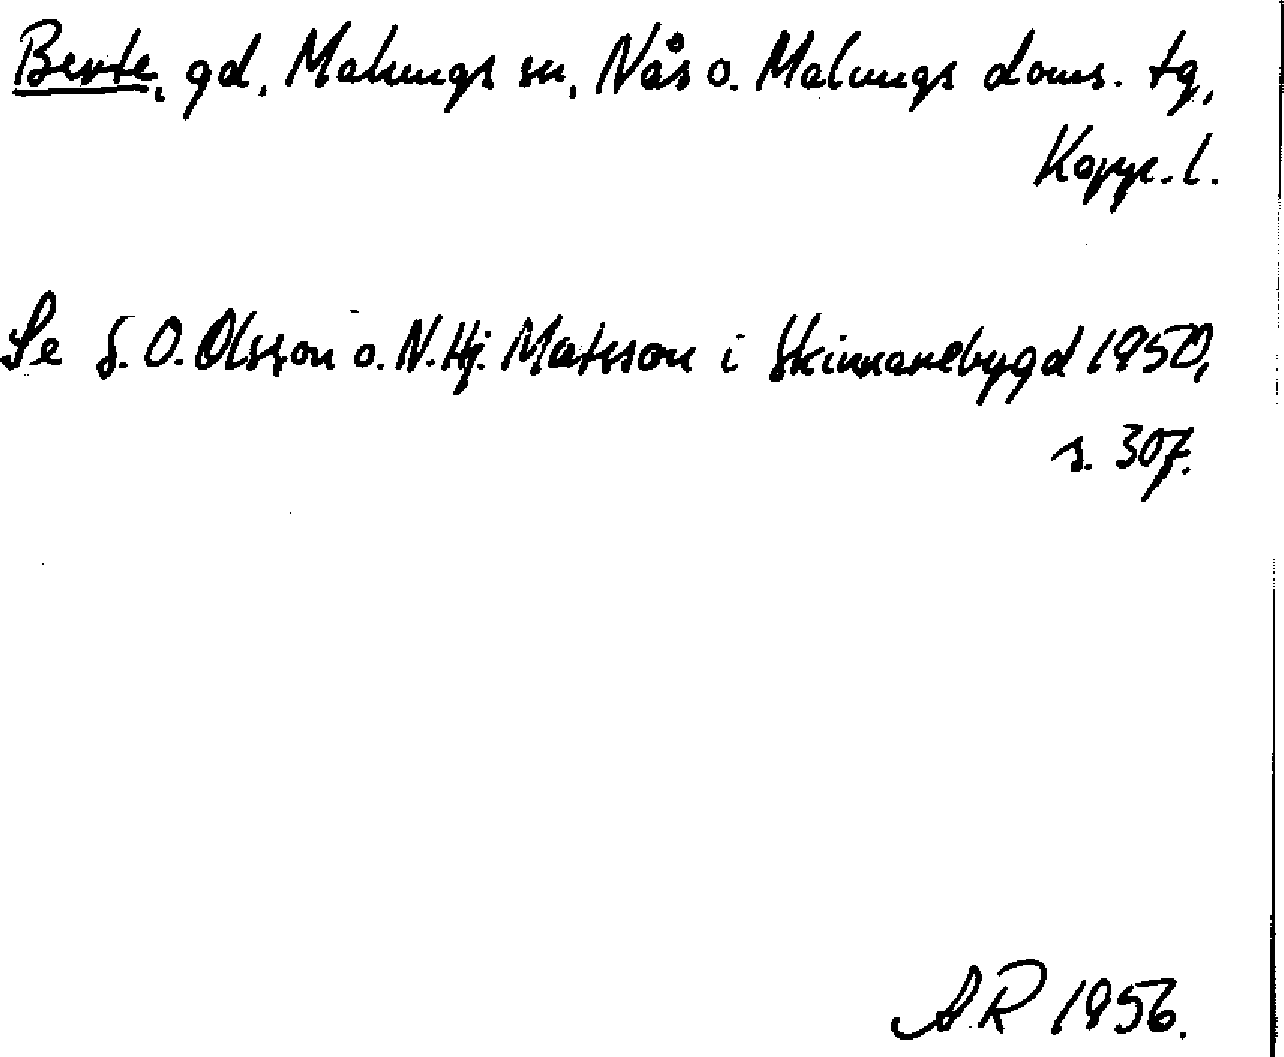 Bente, gd, Malungs sn, Nås o. Malungs doms. tg,
Kopp. l.
Se S. O. Olsson o. N. Hj. Matsson i Skinnarebygd 1950,
s. 307.
A.R 1956.